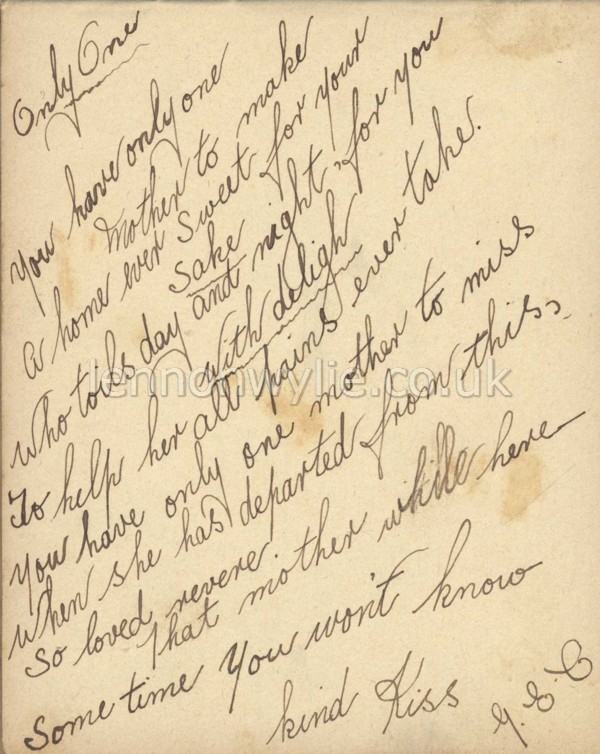 Only One
You have only one
Mother to make
A home ever sweet for your
sake
Who toils day and night for you
with deligh
To help her all pains ever take.
You have only one mother to miss
When she has departed from this,
So loved revere.
That mother while here
Some time you won't know
kind Kiss
G. E. C
lennonwylie.co.uk